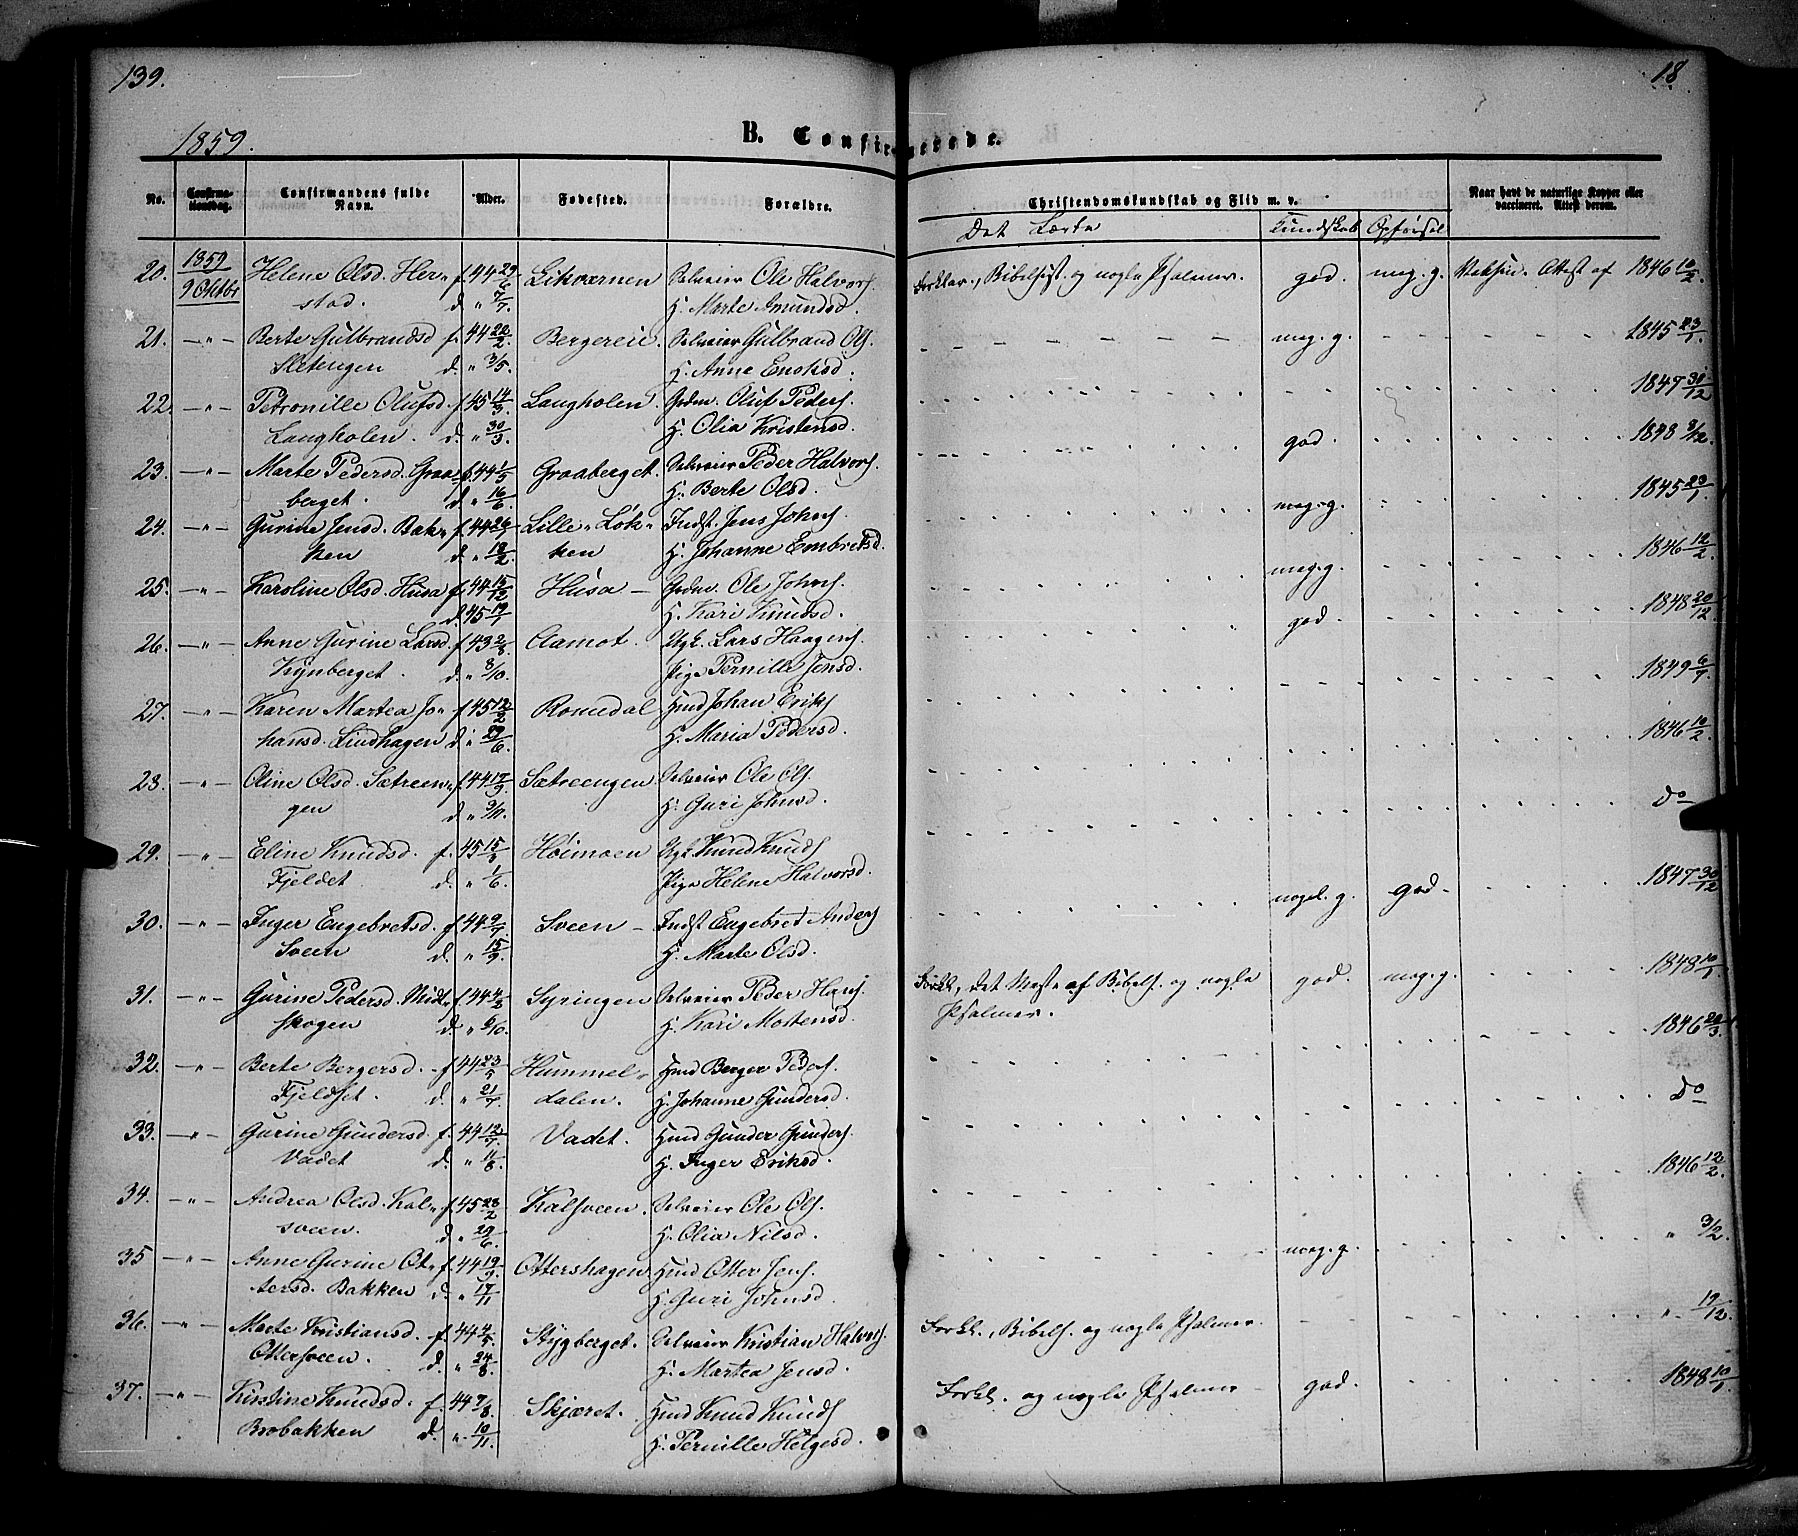 139.
18
1859.
B. Confirmerede.
No.
Confirma-
tionsdag.
Confirmandens fulde
Navn.
Alder.
Fødested.
Forældre.
Christendomskundskab og Flid m. v.
Naar havt de naturlige Kopper eller
vaccineret. Attest derom.
Det Lærte
Kundskab
Opførsel
20. 1859 Helene Olsd. Her- f. 44 29/6 Selveier Ole Halvors. Forklar., Bibelhist. og nogle Psalmer. god. meg. g. Vaksin. Attest af 1846 10/2.
9 Oktbr stad. d. " 7/7 H. Marte Amundsd.
21. —"— Berte Gulbrandsd f. 44 22/2 Bergereie. Selveier Gulbrand Ols. meg. g. 1845 23/1.
Sletengen d. " 3/5. H. Anne Enoksd.
22. —"— Petronille Olufsd. f. 45 14/3. Langholen. Grdm. Oluf Peders. 1847 30/12
Langholen. d. " 30/3. H. Olia Kristensd. god. 1848 3/12.
23. —"— Marte Pedersd. Graa- f. 44 1/5 Graaberget. Selveier Peder Halvors.
berget. d. " 16/6. H. Berte Olsd. meg. g. 1845 23/1
24. —"— Gurine Jensd. Bak- f. 44 Lille-Løk- Indst. Jens Johns.
ken d. " 18/2. ken H. Johanne Embretsd. meg. g. 1846 12/2
25. —"— Karoline Olsd. Husa f. 44 15/12 Husa — Grdm. Ole Johns.
d. 45 19/1 H. Kari Knudsd. god. 1848 20/12.
26. —"— Anne Gurine Larsd. f. 43 2/8 Aamot. Ugk. Lars Haagens.
Kynberget. d. " 8/10. Pige Pernille Jensd. 1849 6/7.
27. —"— Karen Martea Jo- f. 45 12/2 Romedal Hmd Johan Eriks.
hansd. Lindhagen d. " 29/6. H. Maria Pedersd. 1846 10/2.
28. —"— Oline Olsd. Sætreen- f. 44 17/9 Sætreengen Selveier Ole Ols.
gen d. " 9/10. H. Guri Johnsd. do —
29. —"— Eline Knudsd. f. 45 Høimoen Ugk. Knud Knuds.
Fjeldet d. " 1/6. Pige Helene Halvorsd. nogel. g. god. 1847 30/12
30. —"— Inger Engebretsd. f. 44 9/7 Sveen — Indst Engebret Anders.
Sveen d. " 15/9. H. Marte Olsd. 1848 10/1.
31. —"— Gurine Pedersd. Midt- f. 44 4/8 Syringen Selveier Peder Hans. Forkl., det Meste af Bibelh. og nogle god. meg. g.
skogen d. " 6/10. H. Kari Mortensd. Psalmer. 1846 20/3.
32. —"— Berte Bergersd. f. 44 23/5 Hummel- Hmd Berger Peders.
Fjeldset. d. " 21/7. dalen. H. Johanne Gundersd. do —
33. —"— Gurine Gundersd. f. 44 12/7. Vadet. Hmd Gunder Gunders.
Vadet d. " 11/8. H. Inger Eriksd. 1846 12/2.
34. —"— Andrea Olsd. Kal- f. 45 23/2 Kalsveen. Selveier Ole Ols.
sveen. d. " 29/6. H. Olia Nilsd. " 3/2.
35 —"— Anne Gurine Ot- f. 44 19/9. Ottershagen Hmd Otter Jens. meg. g.
tersd. Bakken d. " 17/11 H. Guri Johnsd. " 19/12.
36. —"— Marte Kristiansd. f. 44 4/5. Stygberget. Selveier Kristian Halvors. Forkl., Bibelh. og nogle Psalmer.
Ottersveen. d. " 24/8. H. Martea Jensd. 1848 10/1.
37. —"— Kirstine Knudsd. f. 44 7/8. Skjæret. Hmd Knud Knuds. Forkl. og nogle Psalmer — god.
Brobakken d. " 10/11. H. Pernille Helgesd.